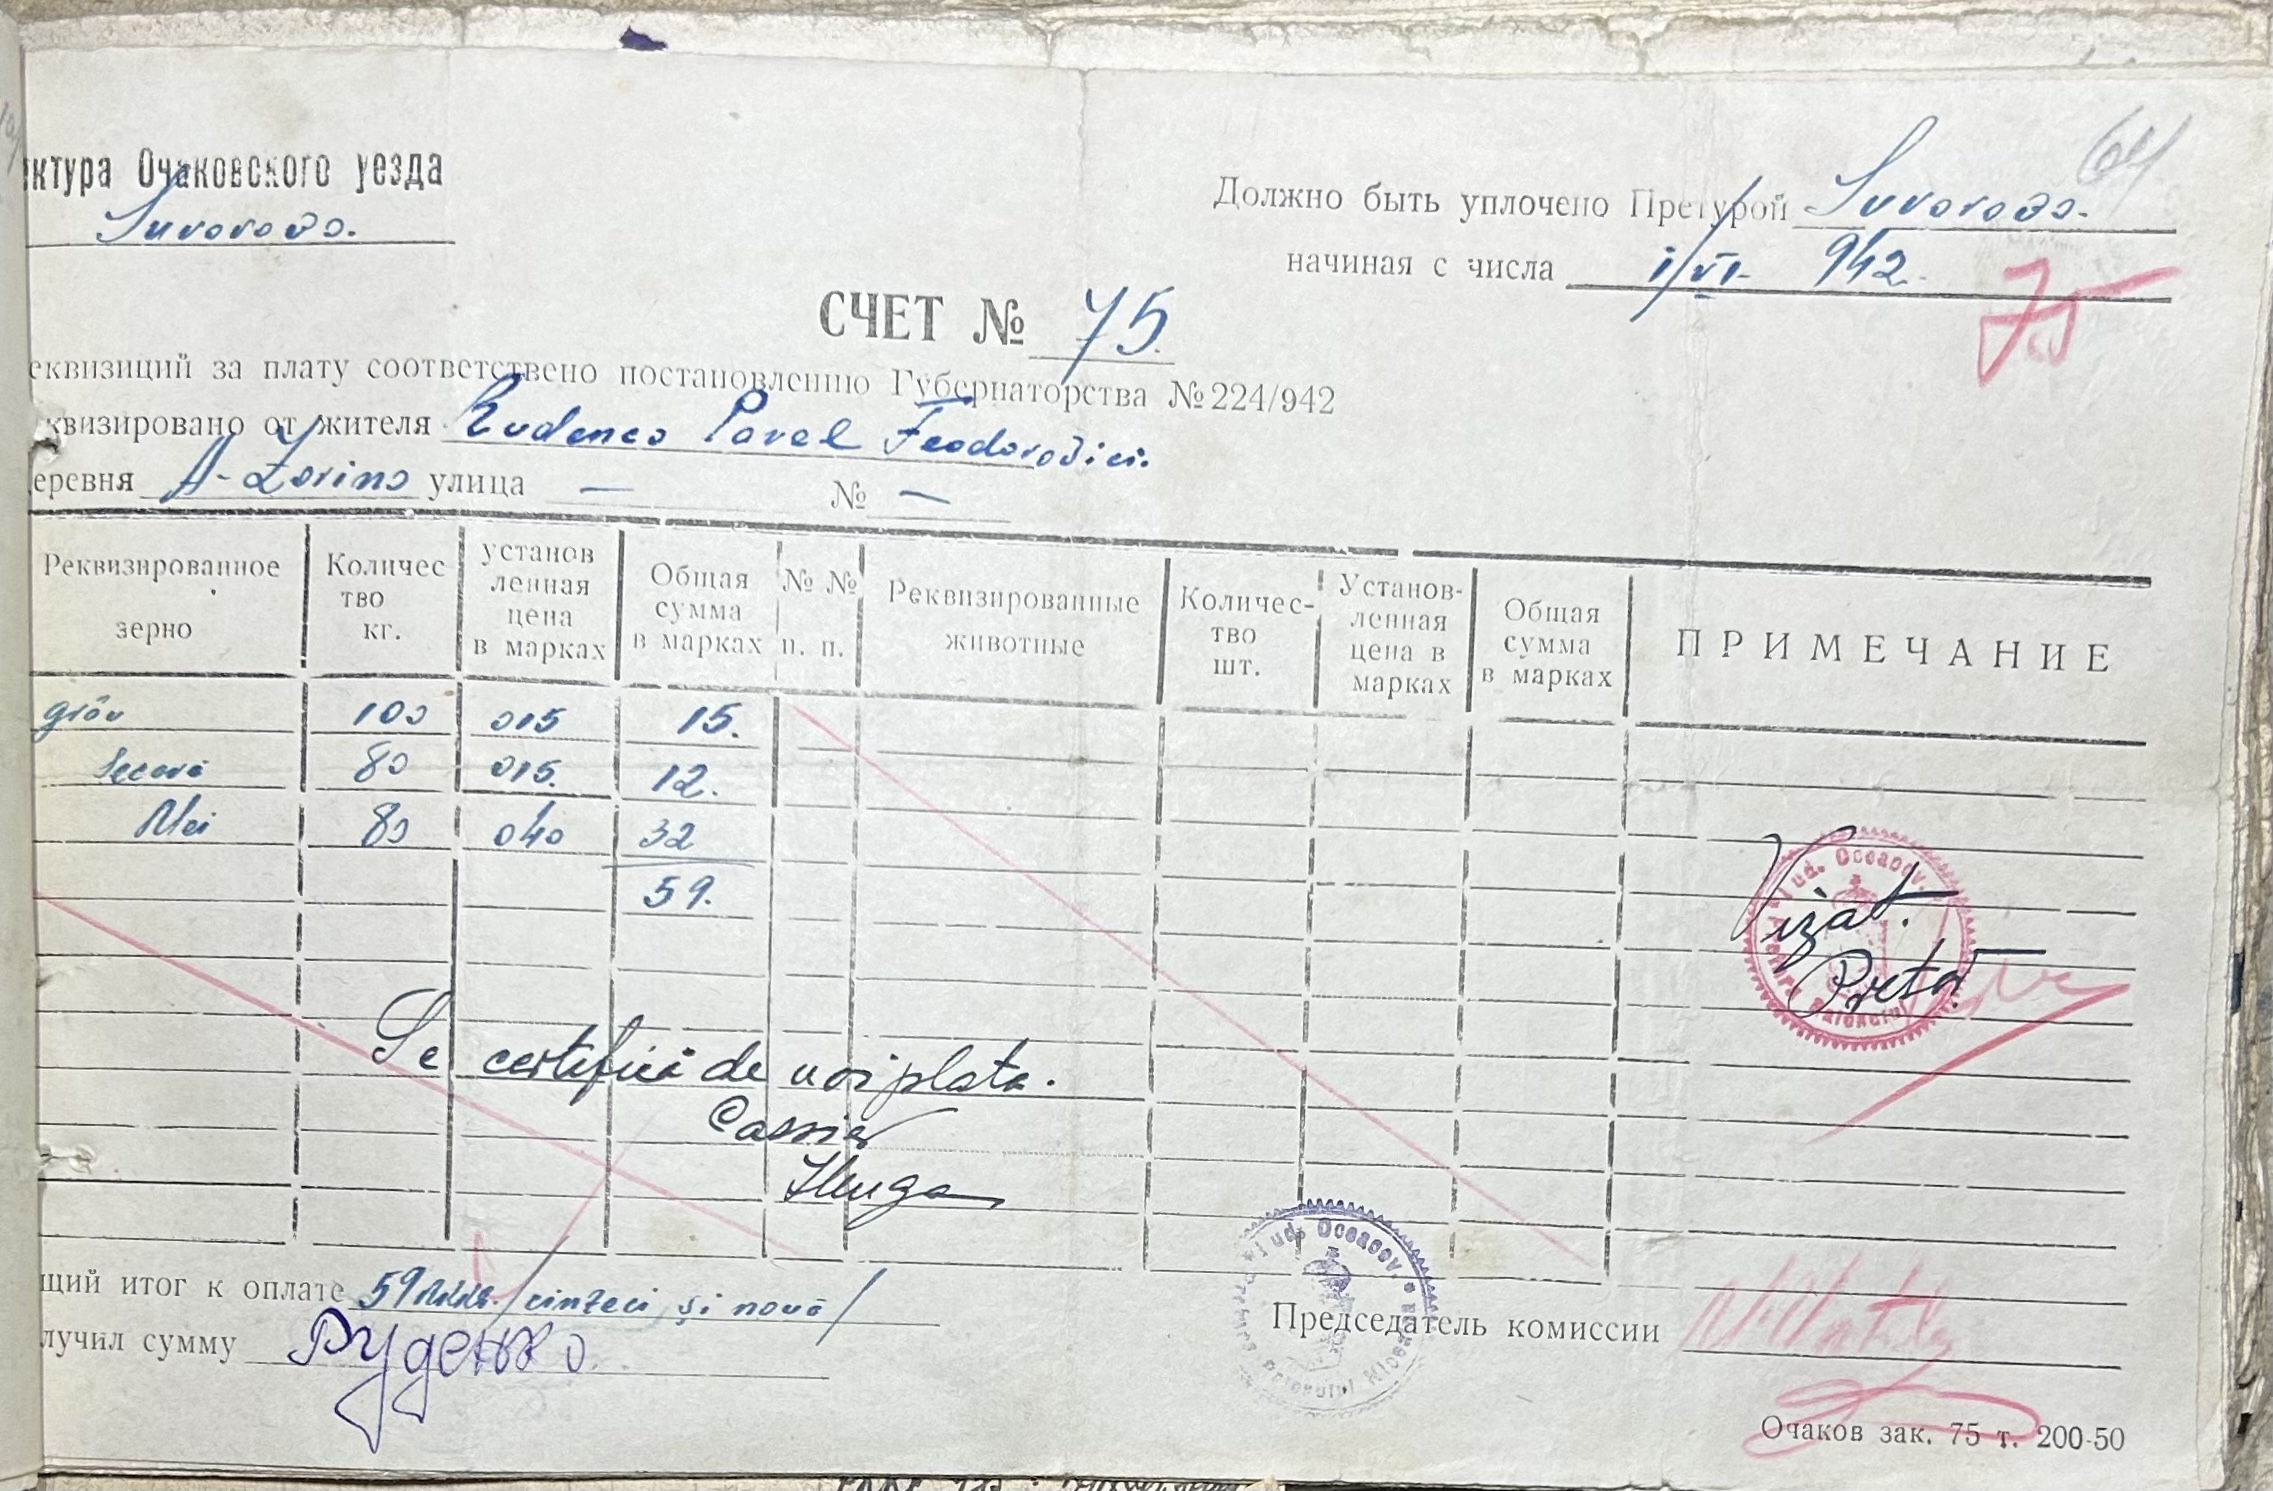 ктура Очаковского уезда
Suvorovo.
64
Должно быть уплочено Претурой Suvorovo.
начиная с числа 1/VI- 942.
75
СЧЕТ № 75.
еквизиций за плату соответствено постановлению Губернаторства № 224/942
квизировано от жителя Rudenco Pavel Feodorovici.
еревня А-Zorino улица — № —
Реквизированное зерно
Количес тво кг.
установ ленная цена в марках
Общая сумма в марках
№ № п. п.
Реквизированные животные
Количес- тво шт.
Установ- ленная цена в марках
Общая сумма в марках
ПРИМЕЧАНИЕ
grâu 100 015 15.
Secară 80 015. 12.
Mei 80 040 32
59.
Jud. Oceacov.
Vizat.
Pretor
Se certifică de noi plata.
Cassier
щий итог к оплате 59 /cinzeci și nouă/
лучил сумму Руденко
Jud. Oceacov.
Председатель комиссии
Очаков зак. 75 т. 200-50